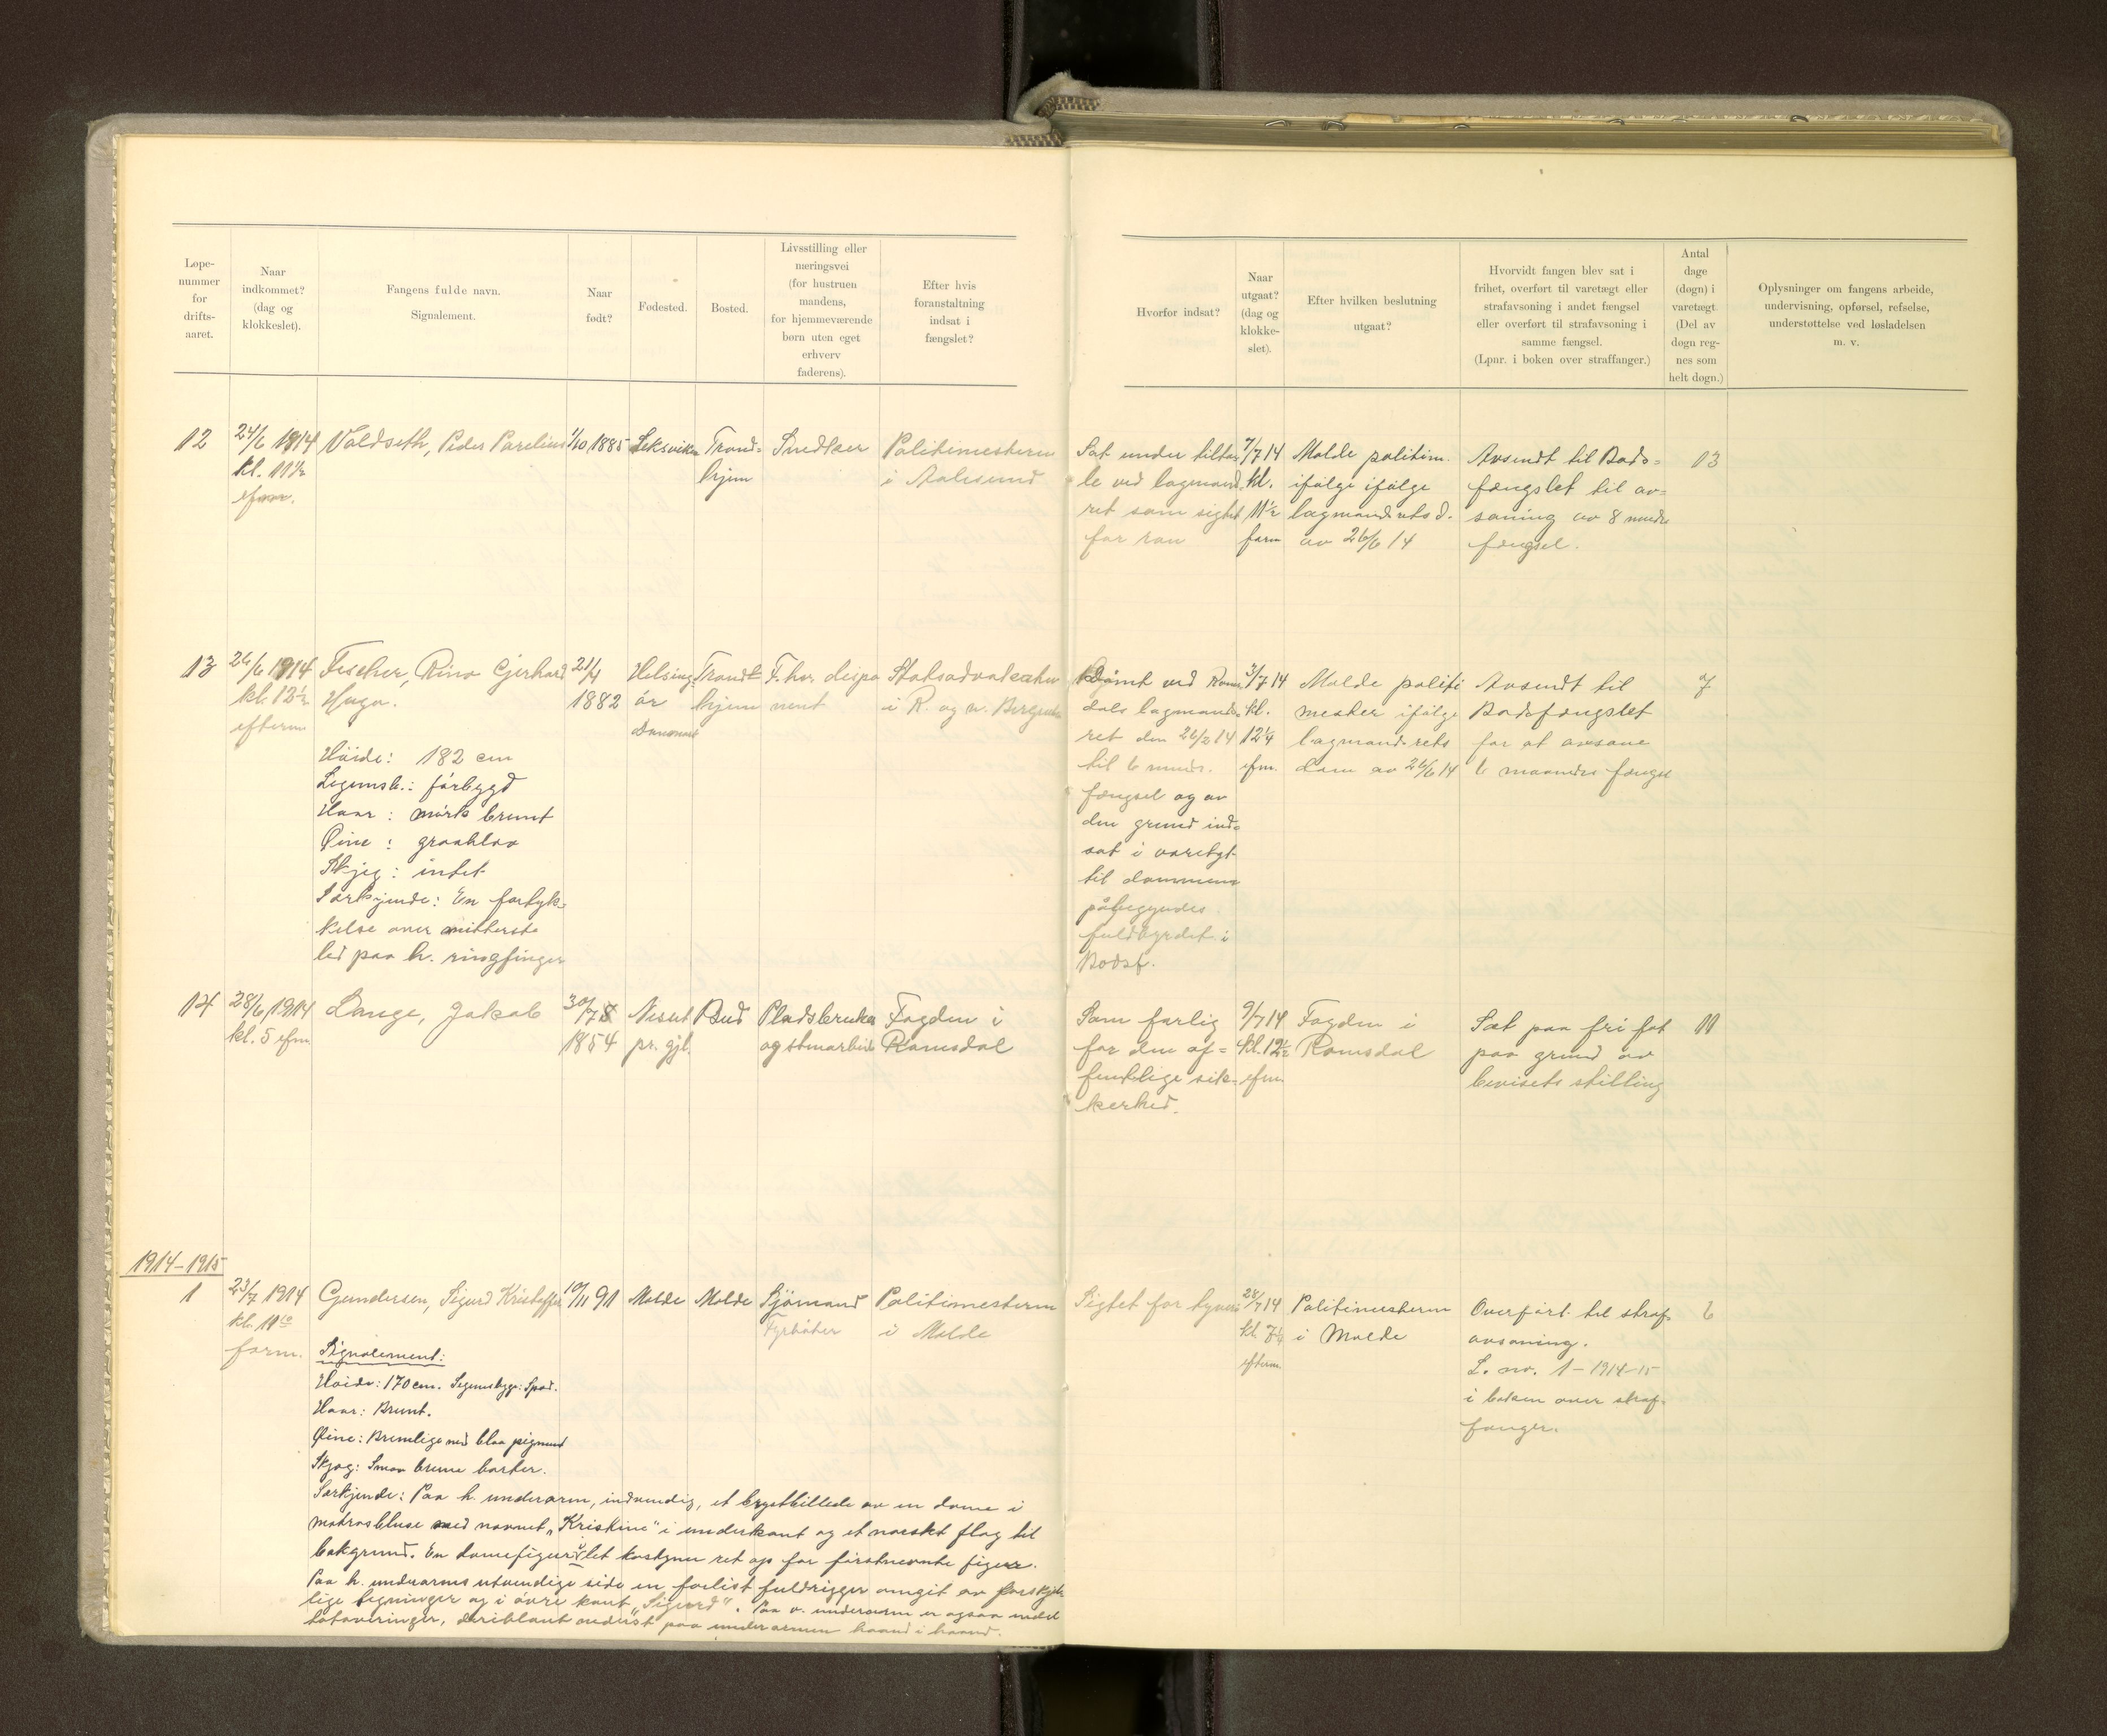 Løpe-
nummer
for
drifts-
aaret.
Naar
indkommet?
(dag og
klokkeslet).
Fangens fulde navn.
Signalement.
Naar
født?
Fødested.
Bosted.
Livsstilling eller
næringsvei
(for hustruen
mandens,
for hjemmeværende
børn uten eget
erhverv
faderens).
Efter hvis
foranstaltning
indsat i
fængslet?
Hvorfor indsat?
Naar
utgaat?
(dag og
klokke-
slet).
Efter hvilken beslutning
utgaat?
Hvorvidt fangen blev sat i
frihet, overført til varetægt eller
strafavsoning i andet fængsel
eller overført til strafavsoning i
samme fængsel.
(Lpnr. i boken over straffanger.)
Antal
dage
(døgn) i
varetægt.
(Del av
døgn reg-
nes som
helt døgn.)
Oplysninger om fangens arbeide,
undervisning, opførsel, refselse,
understøttelse ved løsladelsen
m. v.
12
24/6 1914
kl. 11½
Valdseth, Peder Parelius
1/10 1885
Leksviken
Trond-
hjem
Snedker
Politimesteren
i Aalesund
Sat under tilta-
le ved lagmand-
ret som sigtet
for ran
7/7 14
kl.
11½
form
Molde politim.
ifølge ifølge
lagmandsrets d.
av 26/6 14
Avsendt til Bods-
fængslet til av-
soning av 8 mndrs
fængsel.
13
13
26/6 1914
kl. 12½
efterm
Fischer, Rino Gjerhard
Hugo.
Høide: 182 cm
Legemsb.: førbygd
Haar: mørk brunt
Øine: graablaa
Skjeg: intet
Særkjende: En fortyk-
kelse over mitterste
led paa h. ringfinger
21/4
1882
Helsing-
ör
Danmark
Trond-
hjem
F. hv. dispo
nent
Statsadvokaten
i R. og n. Bergenh.
Dømt ved Roms-
dals lagmands-
ret den 26/6 14
til 6 mndr.
fængsel og av
den grund ind-
sat i varetgt
til dommens
påbegyndes
fuldbyrdet i
Bodsf.
3/7 14
kl.
12¼
efm.
Molde politi
mester ifølge
lagmandsrets
dom av 26/6 14
Avsendt til
Bodsfængslet
for at avsone
6 maaneders fængsel
7
14
28/6 1914
kl. 5 efm.
Lange, Jakob
1854
Nesset
pr. gjl.
Bud
Pladsbruker
og stenarbeid
Fogden i
Romsdal
Som farlig
for den of-
fentlige sik-
kerhed.
9/7 14
kl. 12½
efm.
Fogden i
Romsdal
Sat paa fri fot
paa grund av
bevisets stilling
11
1914-1915
1
23/7 1914
kl. 11¹⁰
form.
Gundersen, Sigurd Kristoffer
Signalement:
Høide: 170 cm. Legemsbygn: Spæd.
Haar: Brunt.
Øine: Brunlige med blaa pigment
Skjæg: Smaa brune barter.
10/11 91
Molde
Molde
Sjømand
Fyrbøter
Politimesteren
i Molde
Sigtet for tyveri
28/7 14
kl. 7¼
efterm.
Politimesteren
i Molde
Overført til straf-
avsoning.
L. nr. 1 - 1914-15
i boken over straf-
fanger.
6
Særkjende: Paa h. underarm, indvendig, et brystbillede av en dame i
matrosbluse med navnet "Kristine" i underkant og et norsk flag til
bakgrund. En damefigur i let kostyme ret op for førstnevnte figur.
Paa h. underarms utvendige side en forlist fuldrigger omgit av forskjel
lige tegninger og i øvre kant "Sigurd". Paa v. underarm er ogsaa endel
tatoveringer, deriblant nederst paa underarmen haand i haand.